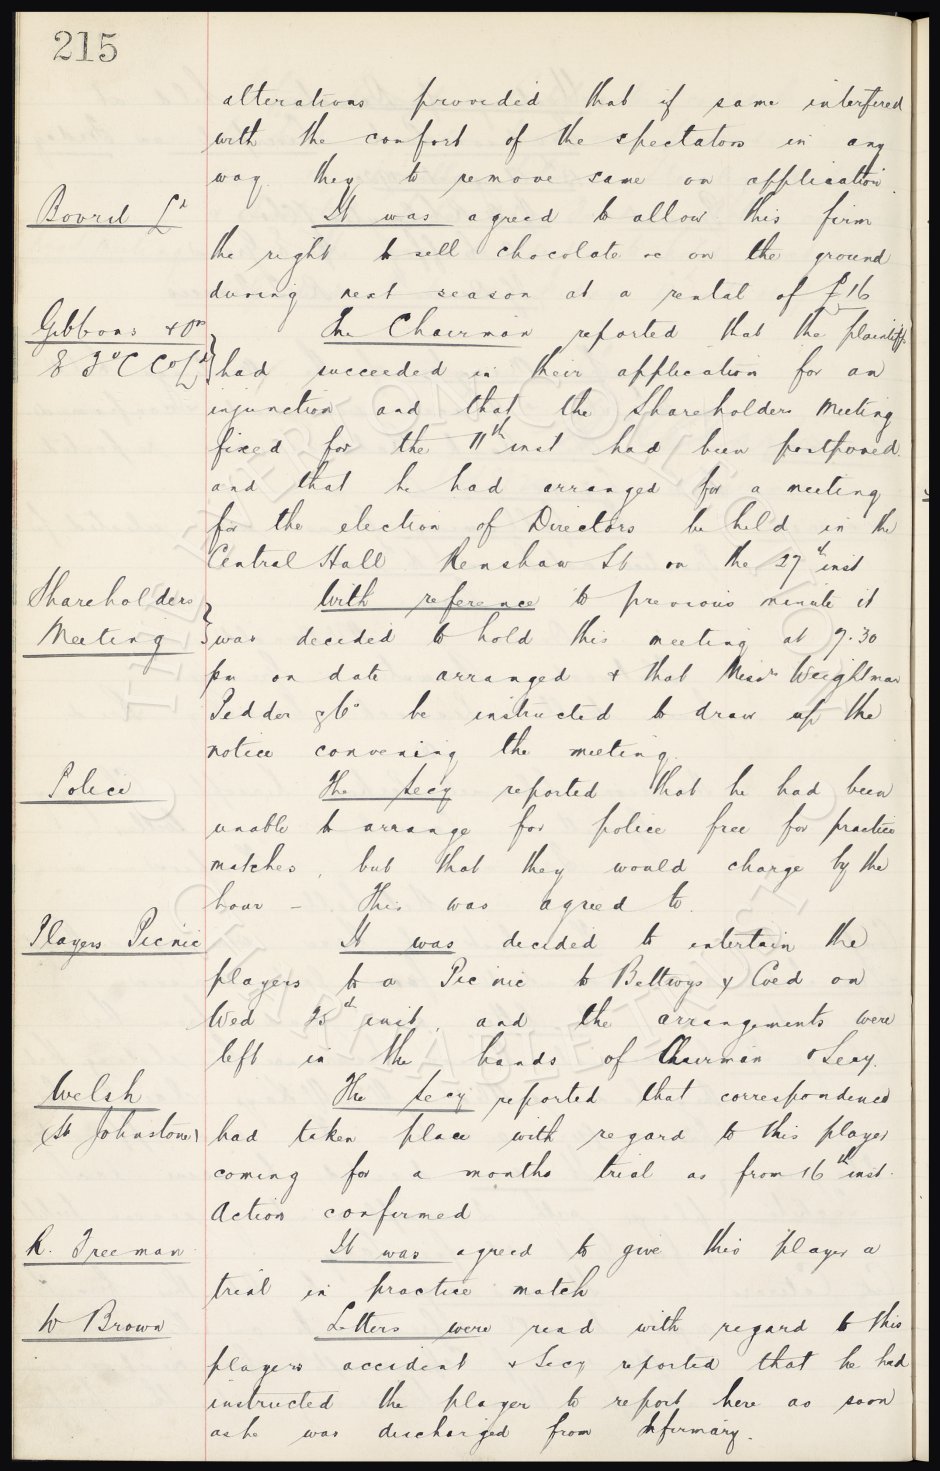 215
alterations provided that if same interfered
with the comfort of the spectators in any
way they to remove same on application.
Bovril Ld
It was agreed to allow this firm
the right to sell chocolate &c on the ground
during next season at a rental of £16
Gibbons & Or
The Chairman reported that the plaintiffs
E F C Co Ld
had succeeded in their application for an
injunction and that the Shareholders Meeting
fixed for the 11th inst had been postponed.
and that he had arranged for a meeting
for the election of Directors be held in the
Central Hall Renshaw St on the 27th inst
Shareholders
With reference to previous minute it
Meeting
was decided to hold this meeting at 7.30
pm on date arranged & that Messrs Weightman
Pedder & Co be instructed to draw up the
notice convening the meeting.
Police
The Secy reported that he had been
unable to arrange for police free for practice
matches, but that they would charge by the
hour – This was agreed to.
Players Picnic
It was decided to entertain the
players to a Picnic to Bettwys y Coed on
Wed 25th inst, and the arrangements were
left in the hands of Chairman & Secy.
Welsh
The Secy reported that correspondence
(St Johnstone)
had taken place with regard to this player
coming for a months trial as from 16th inst.
Action confirmed
R. Freeman
It was agreed to give this player a
trial in practice match
W Brown
Letters were read with regard to this
players accident & Secy reported that he had
instructed the player to report here as soon
as he was discharged from Infirmary.